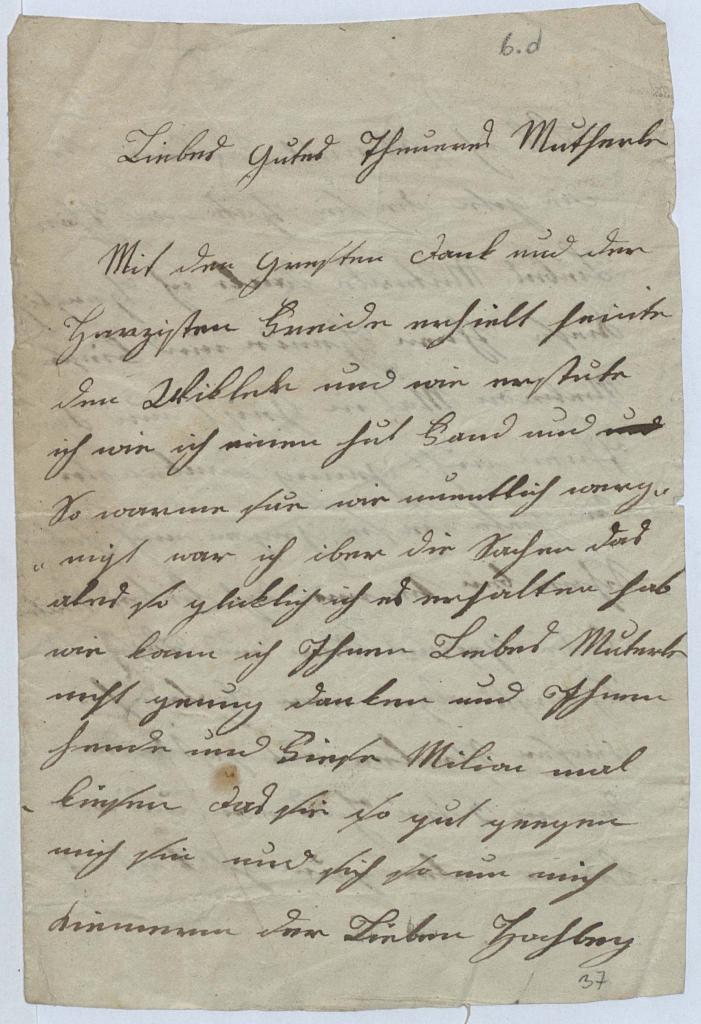 6.d
Liebes gutes Theueres Mutherle
Mit den gresten Dank und der
Harzisten Freide erhielt heinte
den Wikler und wie erstute
ich wie ich einen hut Band und und
So warme wie nuentlich werg„
„nigt war ich iber die Sachen das
ales so glicklich ich es erhalten hab
wie kann ich Ihnen Liebes Muterle
nicht genug danken und Ihnen
hende und Fiese Milion mal
kiesen das sie so gut geegen
mich sin und sich so um mich
kiemern der Lieben Hochberg
37